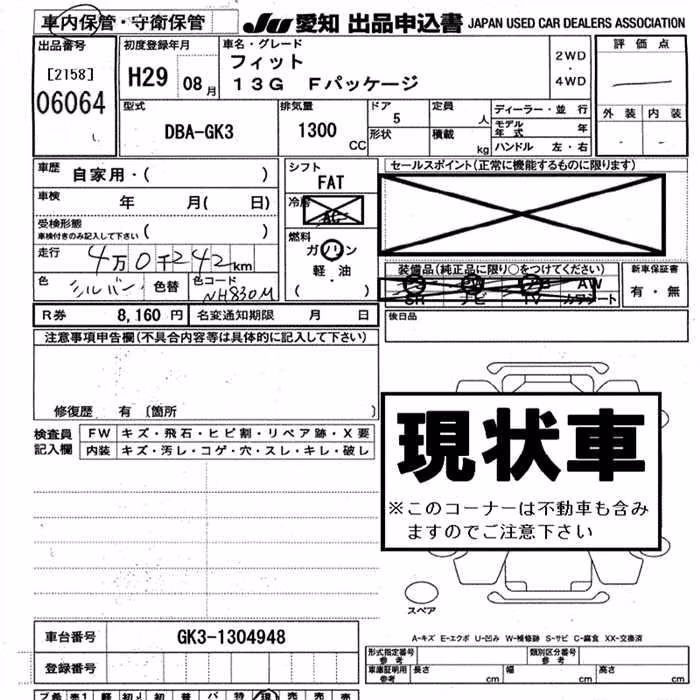 車内保管・守衛保管 JU 愛知 出品申込書 JAPAN USED CAR DEALERS ASSOCIATION
出品番号 初度登録年月 車名・グレード 評価点
[2158] H29 08月 フィット 2WD
・
06064 13G Fパッケージ 4WD
型式 排気量 ドア 定員 ディーラー・並行 外装 内装
DBA-GK3 1300 CC 5 人 モデル年式 年
形状 積載 kg ハンドル 左・右
車歴 自家用・( ) シフト セールスポイント(正常に機能するものに限ります)
FAT
車検 年 月( 日) 冷房
AC
受検形態 ( )
車検付きのみ記入して下さい 燃料
走行 4万0千242km ガソリン
軽・油 装備品(純正品に限り○をつけてください) 新車保証書
色 シルバー 色替 色コード NH830M ( ) SR ナビ TV AW カワシート 有・無
R券 8,160円 名変通知期限 月 日 後日品
注意事項申告欄(不具合内容等は具体的に記入して下さい)
修復歴 有 〔箇所 〕
検査員 FW キズ・飛石・ヒビ割・リペア跡・X要
記入欄 内装 キズ・汚レ・コゲ・穴・スレ・キレ・破レ
現状車
※このコーナーは不動車も含み
ますのでご注意下さい
スペア
A-キズ E-エクボ U-凹み W-補修跡 S-サビ C-腐食 XX-交換済
車台番号 GK3-1304948
形式指定番号 参考 類別区分番号 参考
登録番号 車庫証明用 参考 長さ cm 幅 cm 高さ cm